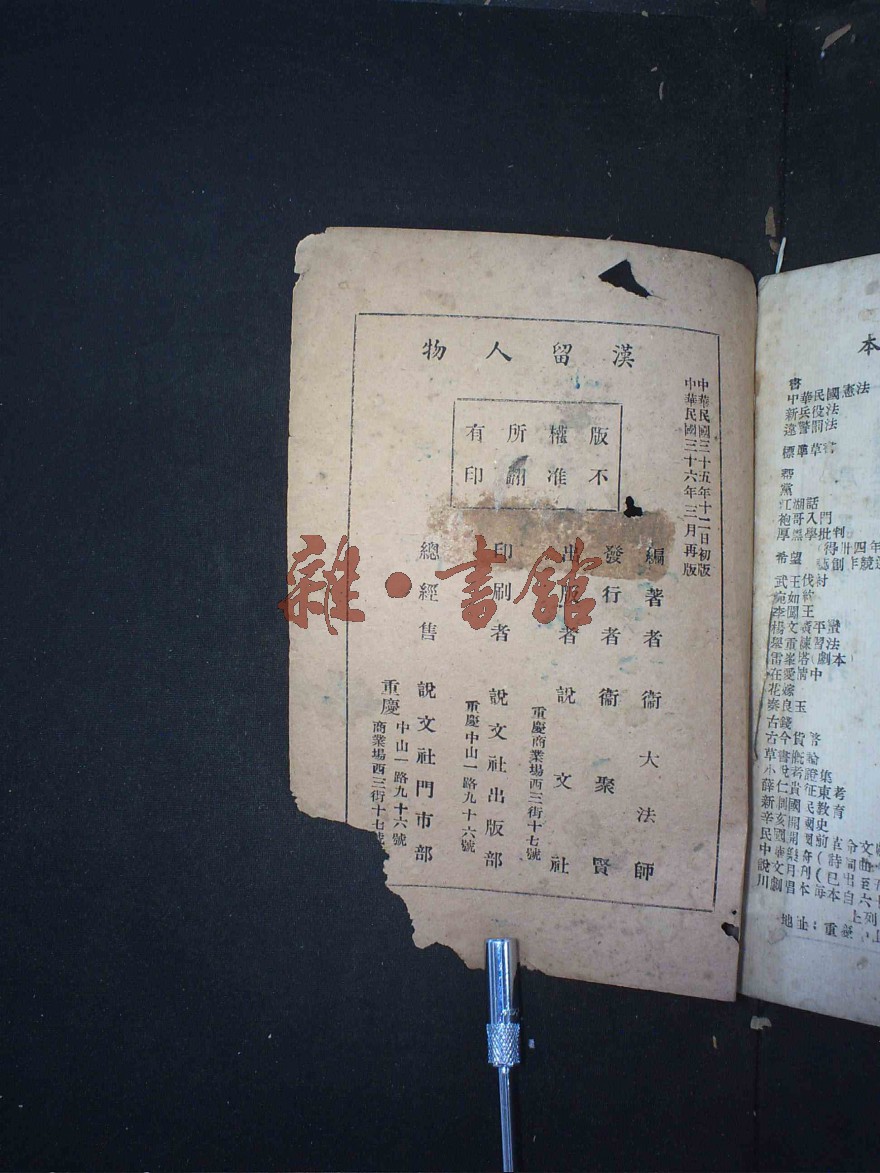 漢留人物
中華民國三十五年十二日初版
中華民國三十六年三月再版
版權所有
不准翻印
編著者 衞大法師
發行者 衞聚賢
出版者 說文社
重慶商業場西三街十七號
印刷者 說文社出版部
重慶中山一路九十六號
總經售 說文社門市部
重慶
中山一路九十六號
商業場西三街十七號
雜·書館
本
書
中華民國憲法
新兵役法
違警罰法
標準草書
幫
黨
江湖話
袍哥入門
厚黑學批判
希望
武王伐紂
李闖王
楊文廣平蠻
舉重練習法
雷峯塔(劇本)
在愛情中
花嫁
秦良玉
古錢
古今貨幣
草書概論
小說考證集
薛仁貴征東考
地址:重慶